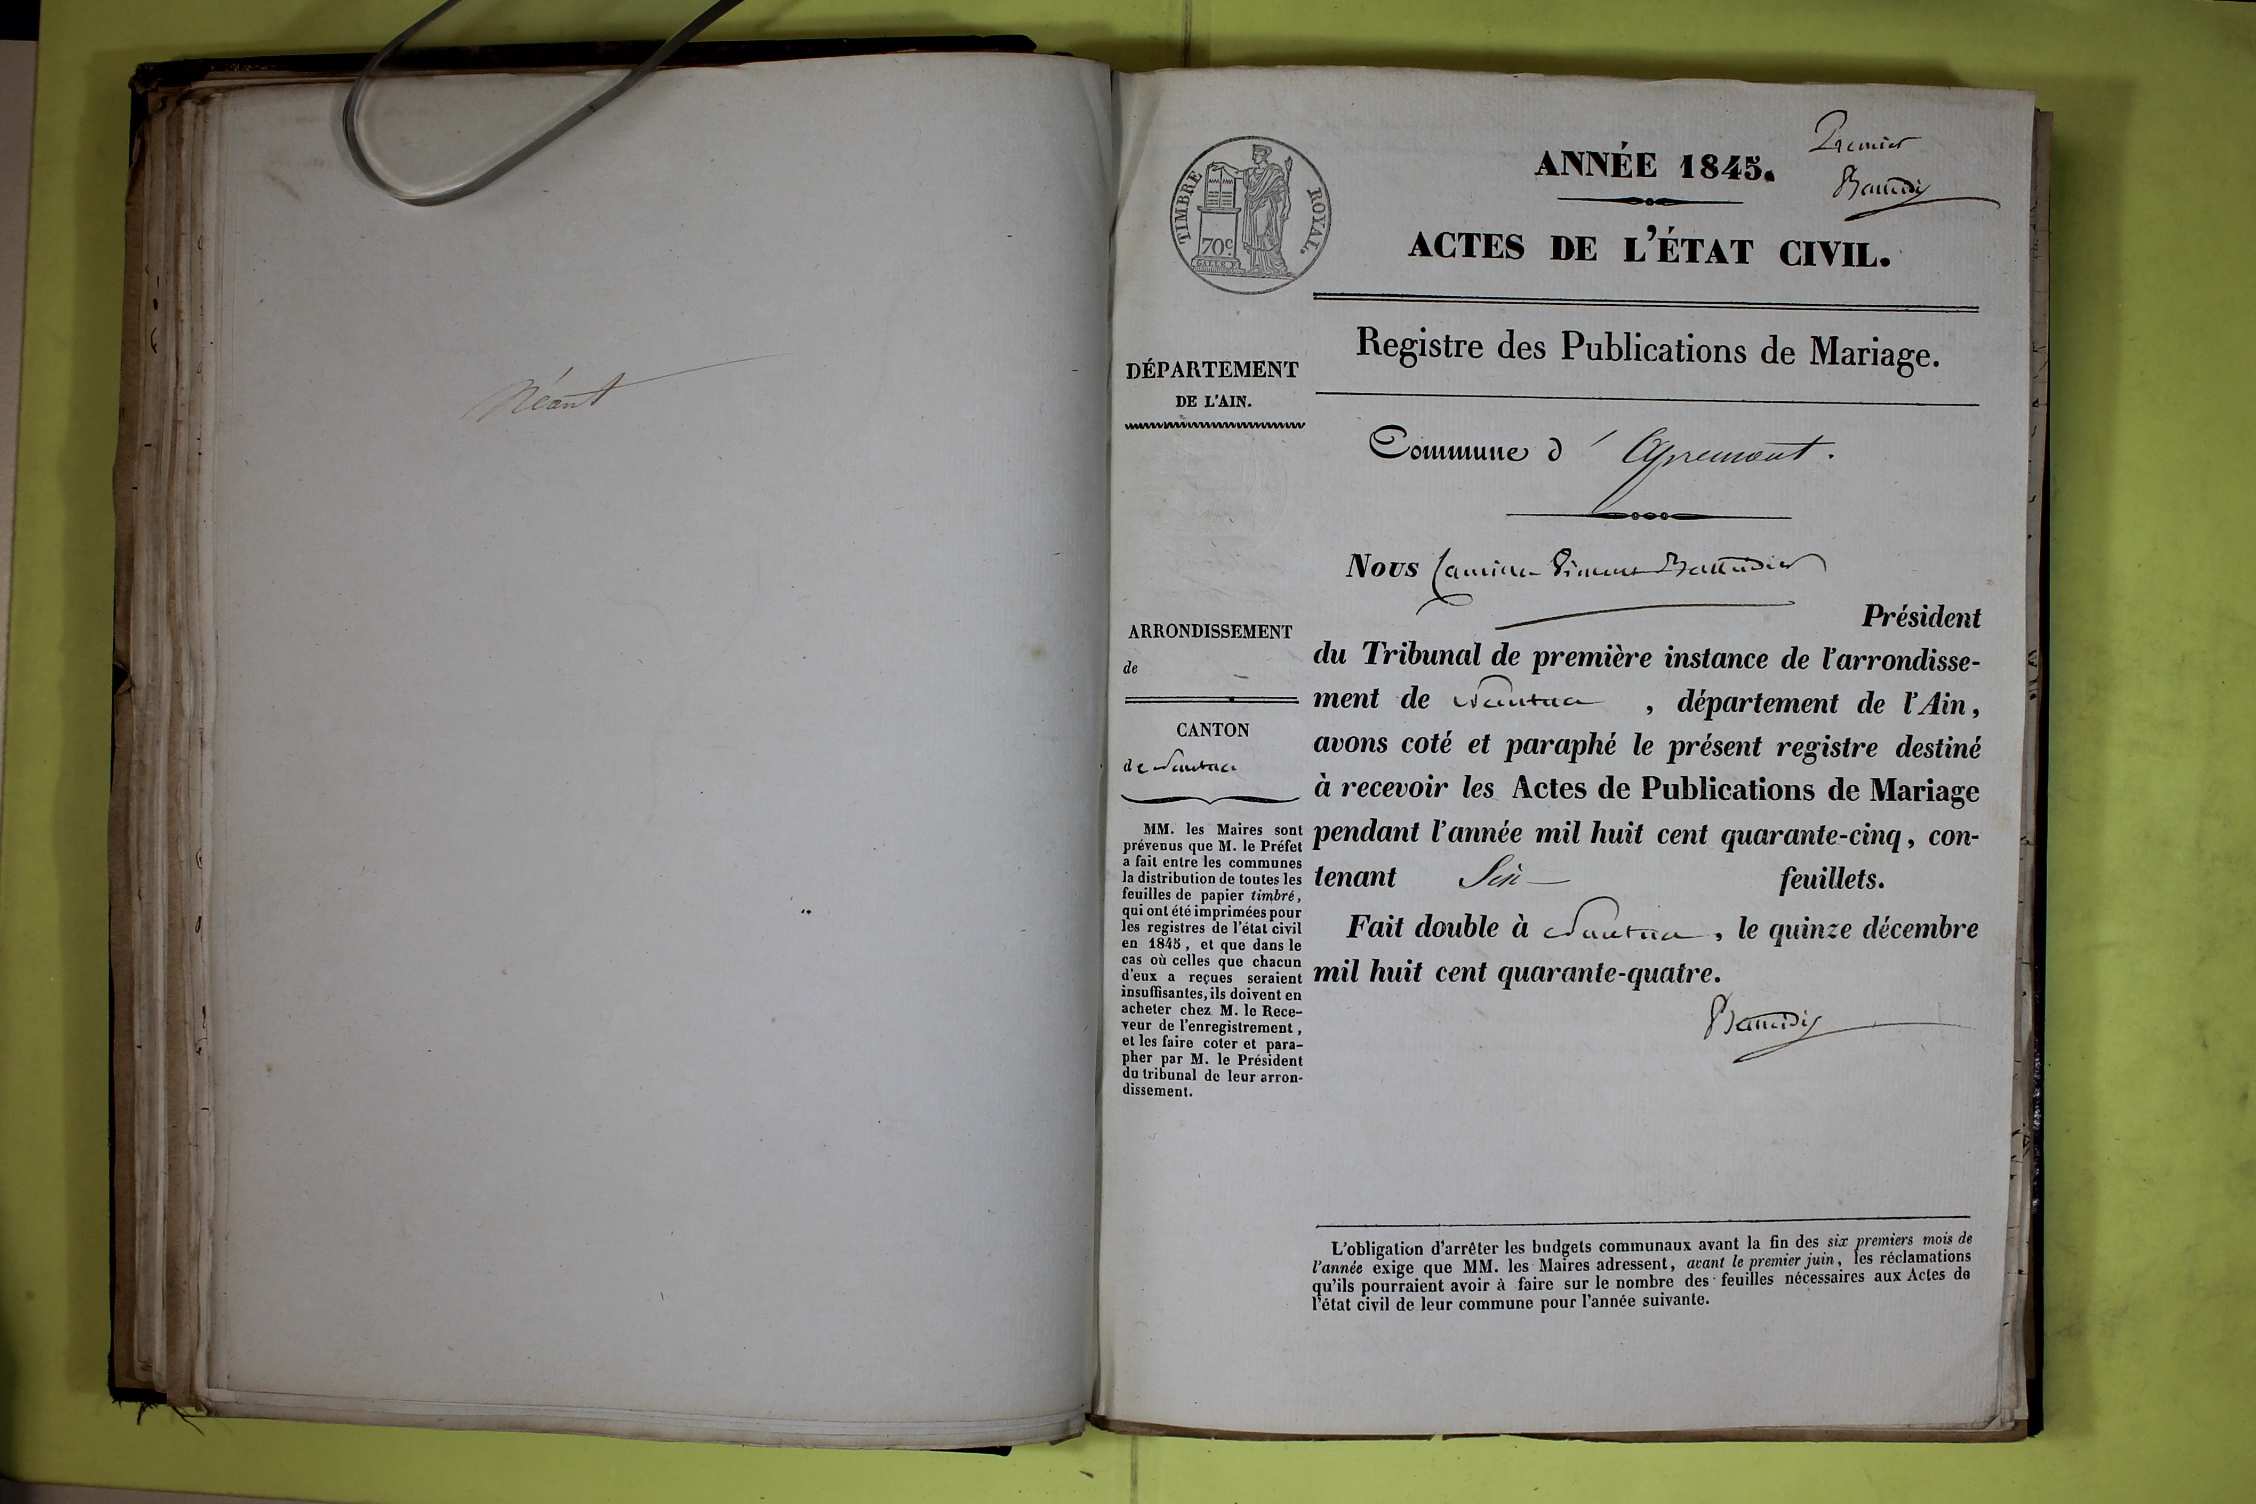 Néant
TIMBRE ROYAL.
70c
ANNÉE 1845.
Premier
ACTES DE L'ÉTAT CIVIL.
Registre des Publications de Mariage.
DÉPARTEMENT
DE L'AIN.
Commune d' Apremont.
ARRONDISSEMENT
de
CANTON
de Nantua
MM. les Maires sont
prévenus que M. le Préfet
a fait entre les communes
la distribution de toutes les
feuilles de papier timbré,
qui ont été imprimées pour
les registres de l'état civil
en 1845, et que dans le
cas où celles que chacun
d'eux a reçues seraient
insuffisantes, ils doivent en
acheter chez M. le Rece-
veur de l'enregistrement,
et les faire coter et para-
pher par M. le Président
du tribunal de leur arron-
dissement.
Nous
Président
du Tribunal de première instance de l'arrondisse-
ment de Nantua , département de l'Ain,
avons coté et paraphé le présent registre destiné
à recevoir les Actes de Publications de Mariage
pendant l'année mil huit cent quarante-cinq, con-
tenant Six feuillets.
Fait double à Nantua , le quinze décembre
mil huit cent quarante-quatre.
L'obligation d'arrêter les budgets communaux avant la fin des six premiers mois de
l'année exige que MM. les Maires adressent, avant le premier juin, les réclamations
qu'ils pourraient avoir à faire sur le nombre des feuilles nécessaires aux Actes de
l'état civil de leur commune pour l'année suivante.